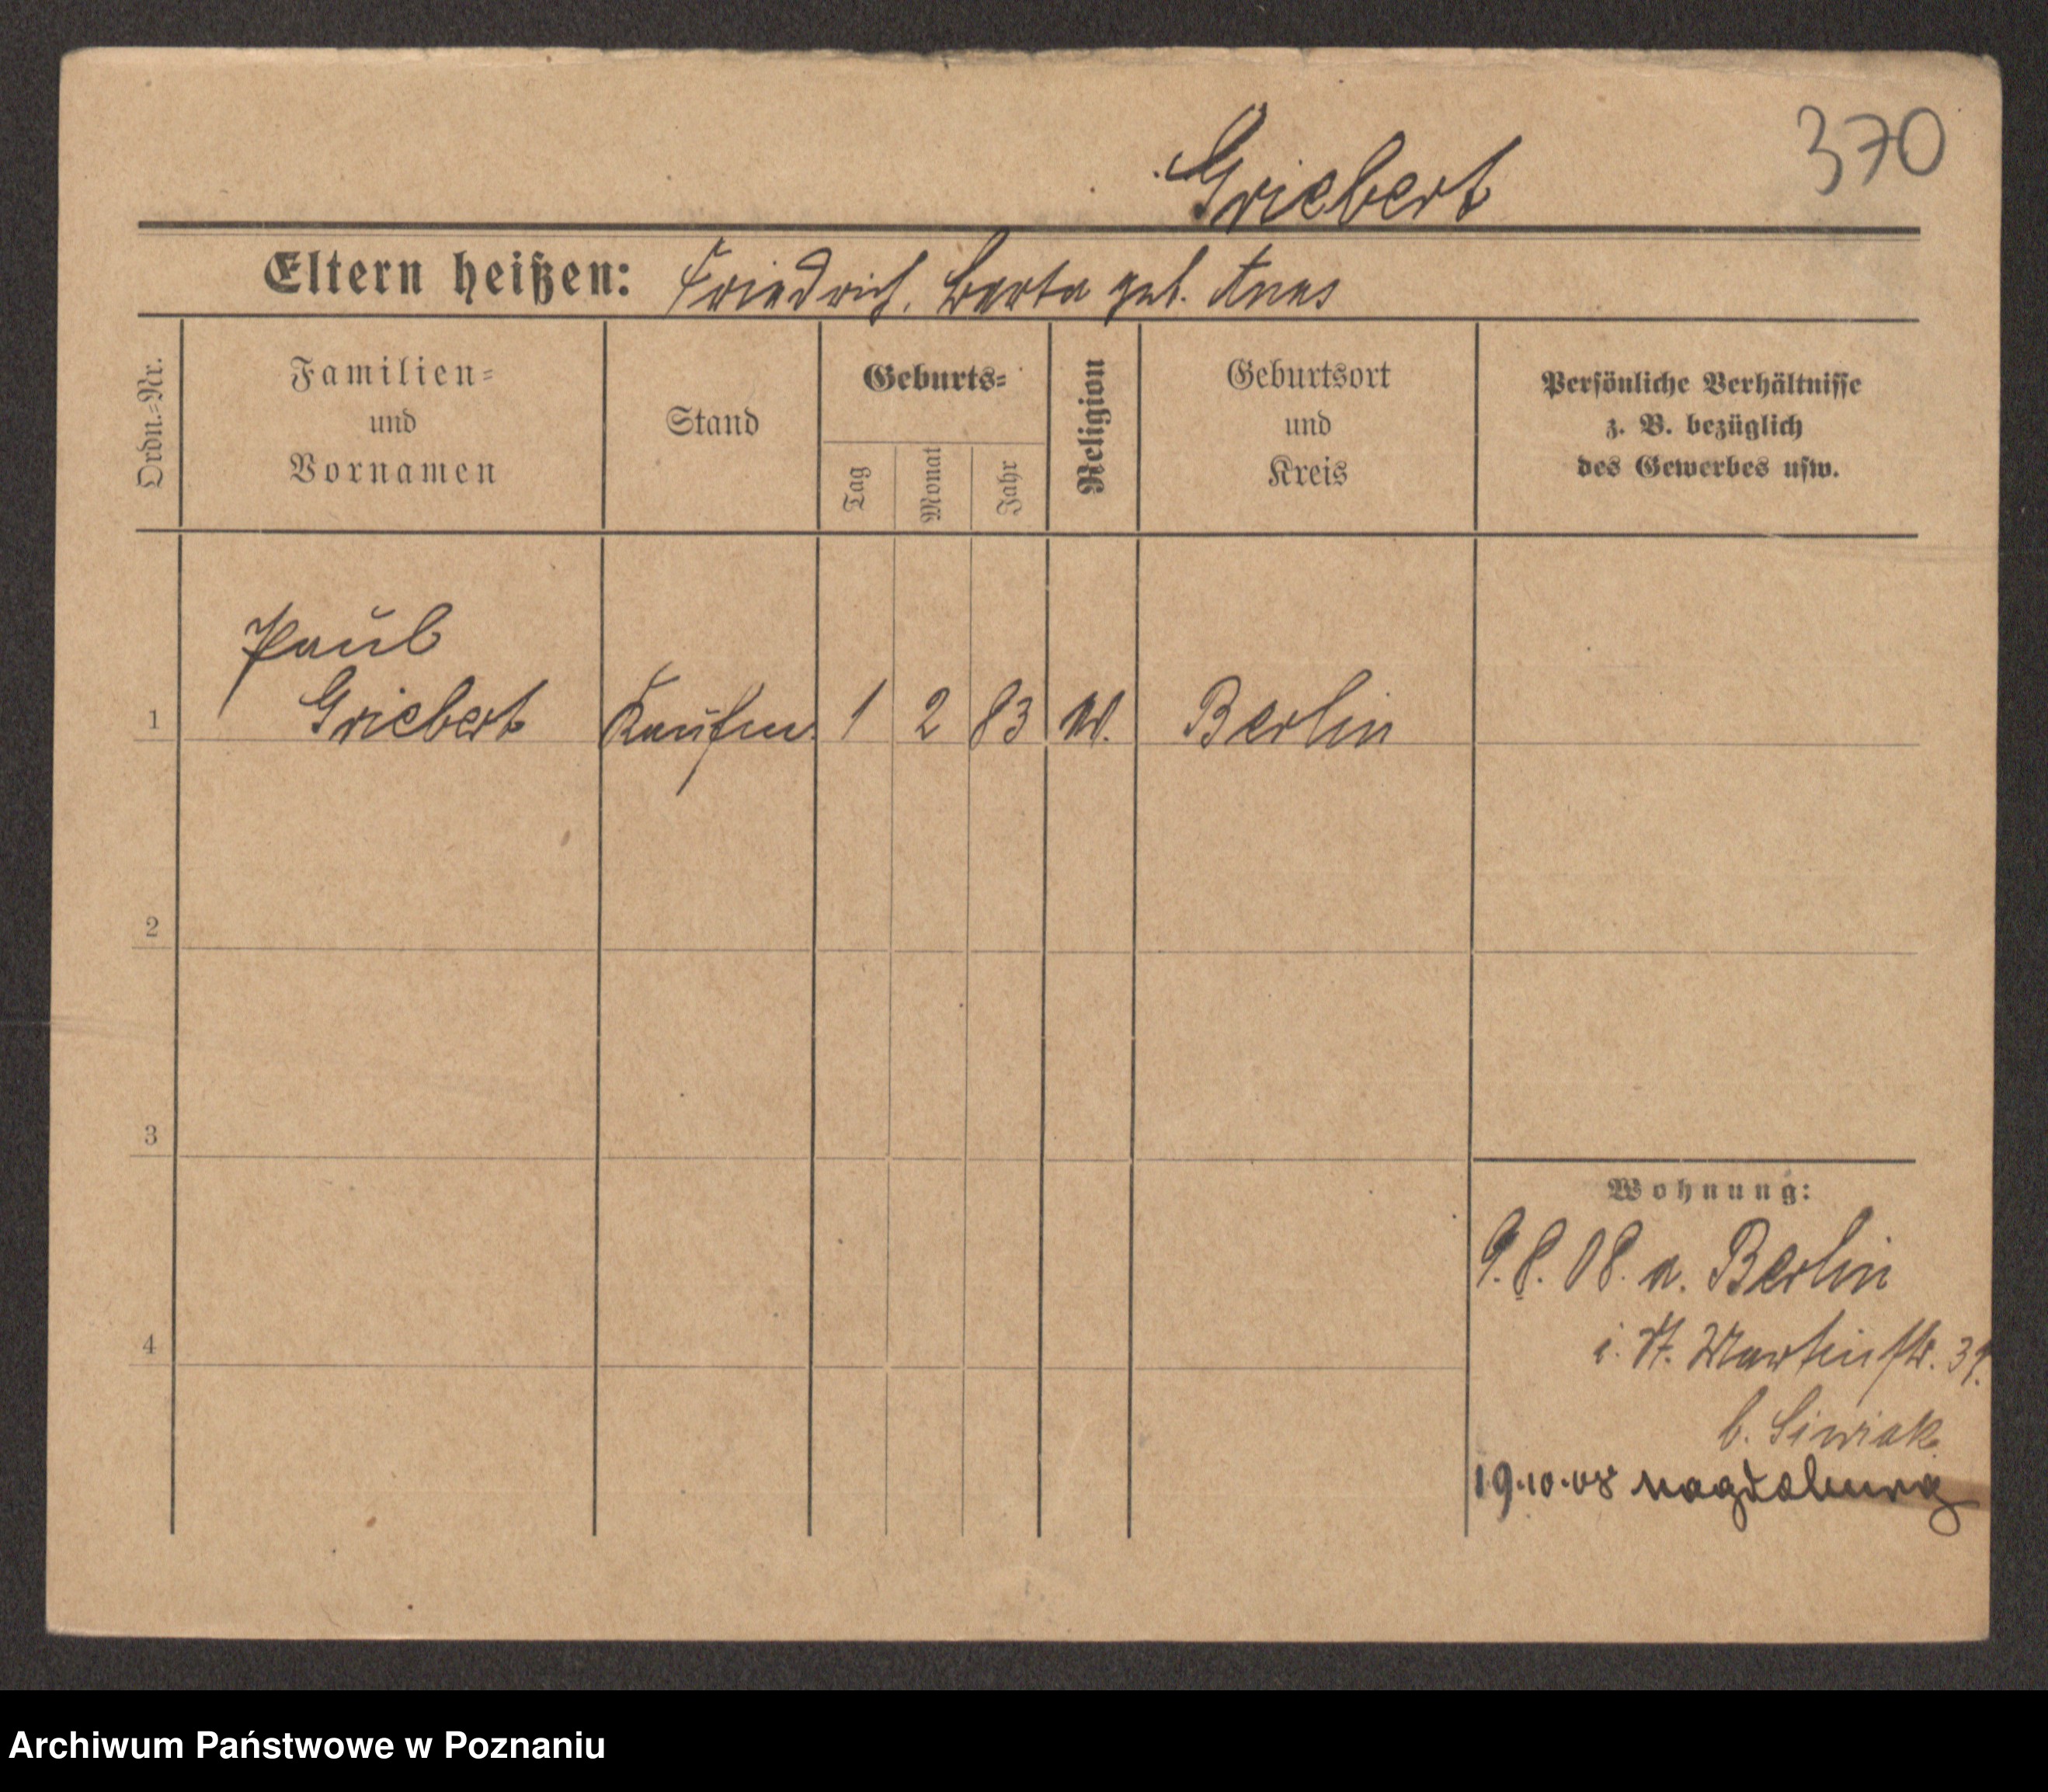 370
Griebert
Eltern heißen: Friedrich, Berta geb.
Ordn.-Nr.
Familien-
und
Vornamen
Stand
Geburts-
Tag
Monat
Jahr
Religion
Geburtsort
und
Kreis
Persönliche Verhältnisse
z. B. bezüglich
des Gewerbes usw.
Paul
1 Griebert Kaufm. 1 2 83 Berlin
2
3
4
Wohnung:
9.8.08. a. Berlin
i. St. Martinstr. 39.
b. Siwiak
19.10.08 Magdeburg
Archiwum Państwowe w Poznaniu